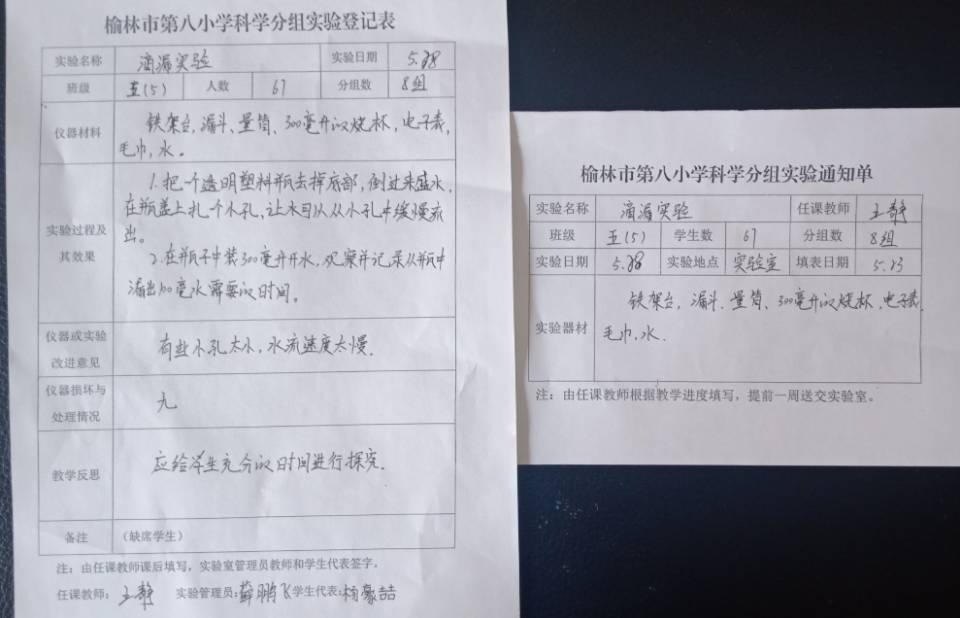 榆林市第八小学科学分组实验登记表
实验名称 滴漏实验 实验日期 5.28
班级 五(5) 人数 67 分组数 8组
仪器材料 铁架台,漏斗、量筒、300毫升的烧杯,电子表,
毛巾,水。
实验过程及其效果
1.把一个透明塑料瓶去掉底部,倒过来盛水,
在瓶盖上扎一个小孔,让水可以从小孔中缓慢流
出。
2.在瓶子中装300毫升水,观察并记录从瓶中
漏出100毫水需要的时间。
仪器或实验改进意见 有些小孔太小,水流速度太慢.
仪器损坏与处理情况 无
教学反思 应给学生充分的时间进行探究.
备注 (缺席学生)
注:由任课教师课后填写,实验室管理员教师和学生代表签字。
任课教师:王静 实验管理员:薛鹏飞 学生代表:杨豪喆
榆林市第八小学科学分组实验通知单
实验名称 滴漏实验 任课教师 王静
班级 五(5) 学生数 67 分组数 8组
实验日期 5.28 实验地点 实验室 填表日期 5.23
实验器材 铁架台,漏斗、量筒、300毫升的烧杯,电子表,
毛巾,水.
注:由任课教师根据教学进度填写,提前一周送交实验室。